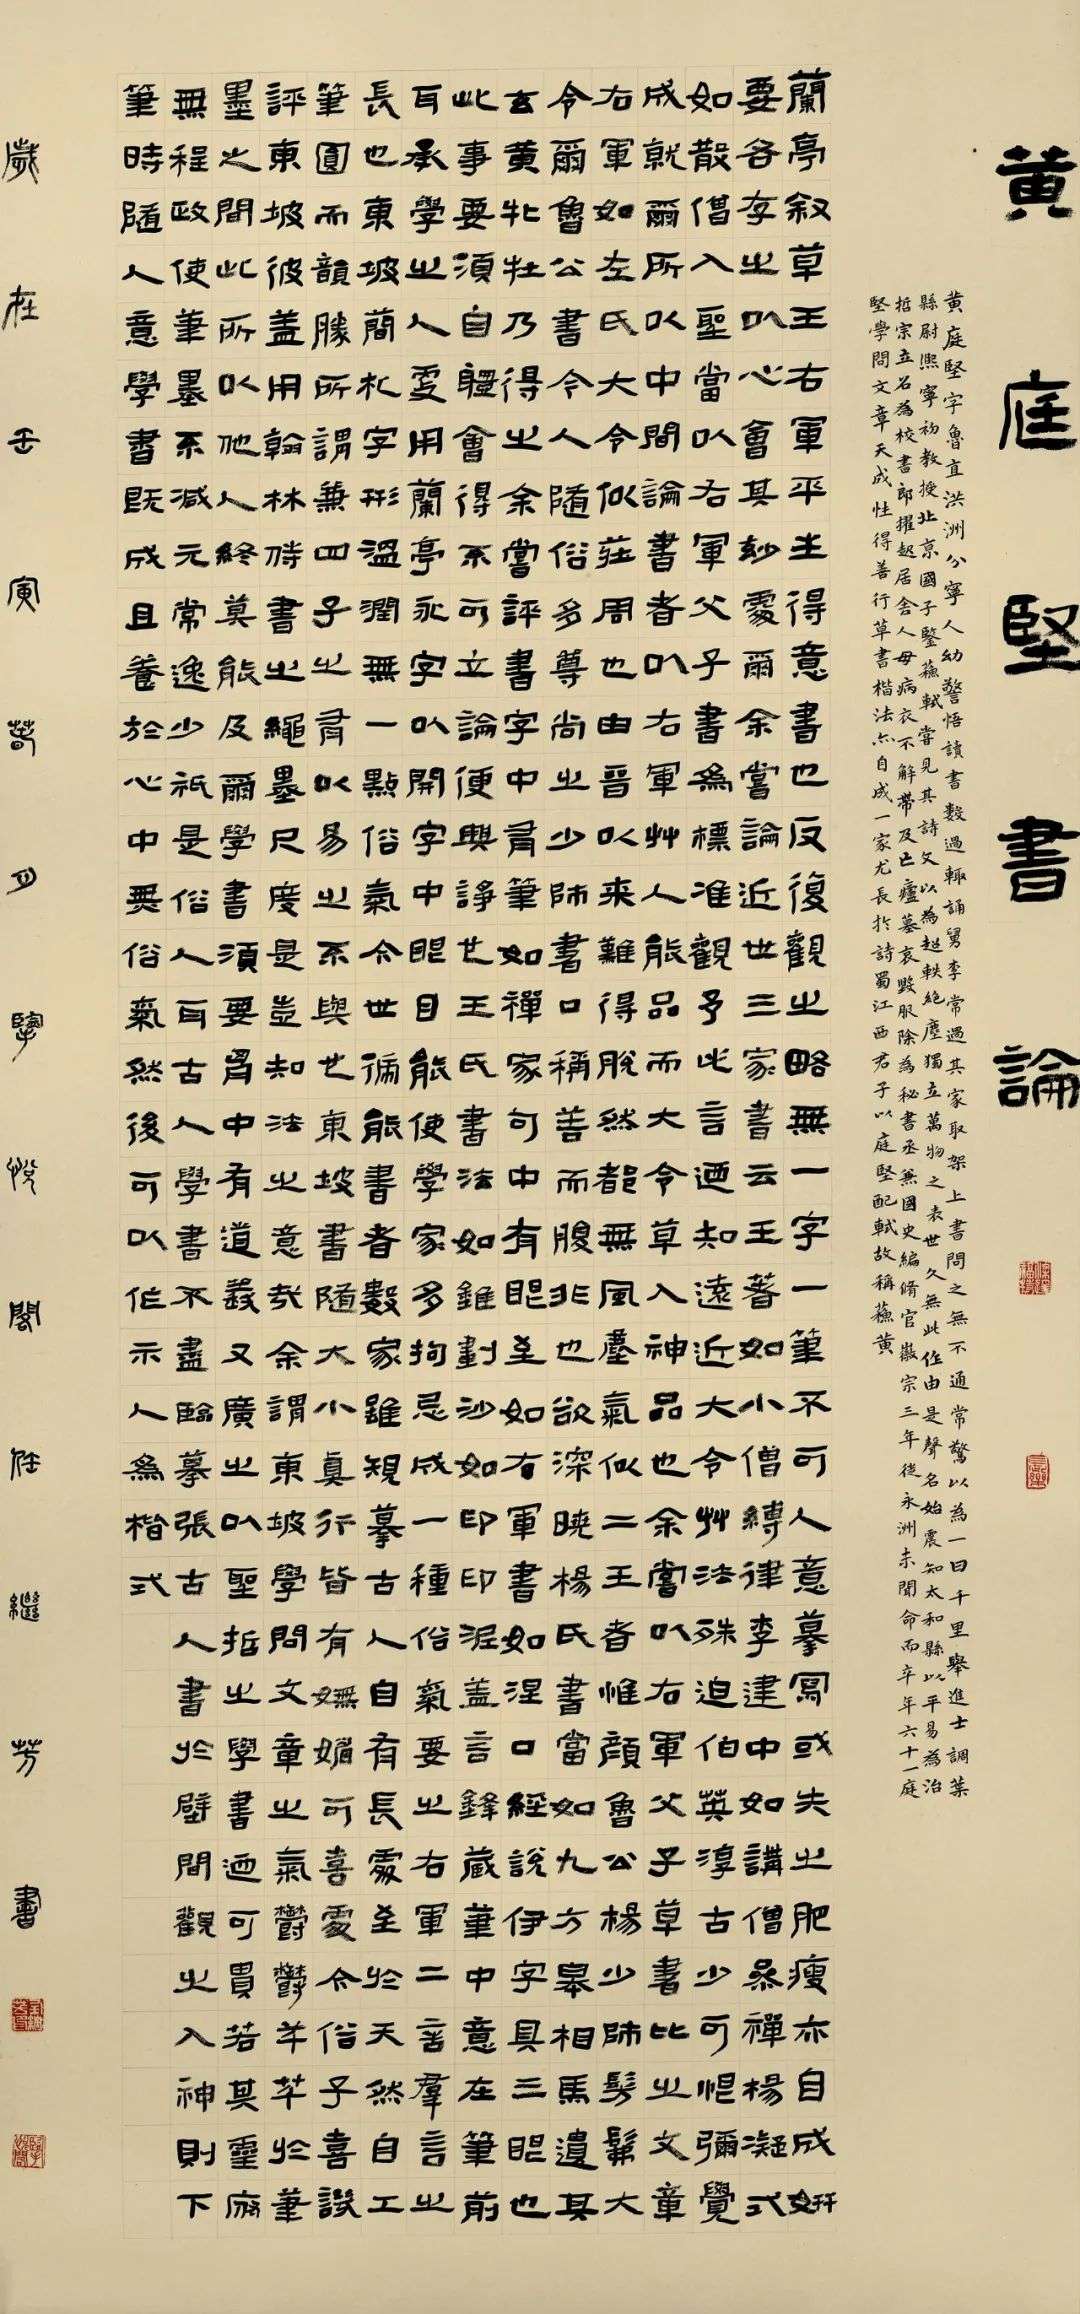 黄庭堅書論
黄庭堅字魯直洪洲分寧人幼警悟讀書數過輒誦舅李常過其家取架上書問之無不通常驚以為一日千里舉進士調葉
縣尉熙寧初教授北京國子監蘇軾嘗見其詩文以為超軼絕塵獨立萬物之表世久無此作由是聲名始震知太和縣以平易為治
哲宗立名為校書郎擢起居舍人母病衣不解帶及亡廬墓哀毀服除為秘書丞兼國史編脩官徽宗三年徙永洲未聞命而卒年六十一庭
堅學問文章天成性得善行草書楷法亦自成一家尤長於詩蜀江西君子以庭堅配軾故稱蘇黄
蘭亭叙草王右軍平生得意書也反復觀之略無一字一筆不可人意摹寫或失之肥瘦亦自成妍
要各存之以心會其妙處爾余嘗論近世三家書云王著如小僧縛律李建中如講僧參禪楊凝式
如散僧入聖當以右軍父子書為標准觀予此言迺知遠近大令艸法殊迫伯英淳古少可恨彌覺
成就爾所以中間論書者以右軍艸人能品而大令草入神品也余嘗以右軍父子草書比之文章
右軍如左氏大令似莊周也由晉以来難得脫然都無風塵氣似二王者惟顏魯公楊少師髣髴大
令爾魯公書令人隨俗多尊尚之少師書口稱善而腹非也欲深曉楊氏書當如九方皋相馬遺其
玄黄牝牡乃得之余嘗評書字中有筆如禪家句中有眼至如右軍書如涅口經說伊字具三眼也
此事要須自軆會得不可立論便興諍世王氏書法如錐劃沙如印印泥蓋言鋒藏筆中意在筆前
耳承學之人更用蘭亭永字以開字中眼目能使學家多拘忌成一種俗氣要之右軍二言羣言之
長也東坡簡札字形溫潤無一點俗氣今世號能書者數家雖規摹古人自有長處至於天然自工
筆圓而韻勝所謂兼四子之有以易之不與世東坡書隨大小真行皆有嫵媚可喜處今俗子喜譏
評東坡彼蓋用翰林侍書之繩墨尺度是豈知法之意哉余謂東坡學問文章之氣鬱鬱芊芊於筆
墨之間此所以他人終莫能及爾學書須要胷中有道義又廣之以聖哲之學書迺可貴若其靈府
無程政使筆墨不减元常逸少祇是俗人耳古人學書不盡臨摹張古人書於壁間觀之入神則下
筆時隨人意學書既成且養於心中無俗氣然後可以作示人為楷式
歲在壬寅暮月學悅閣任繼芳書